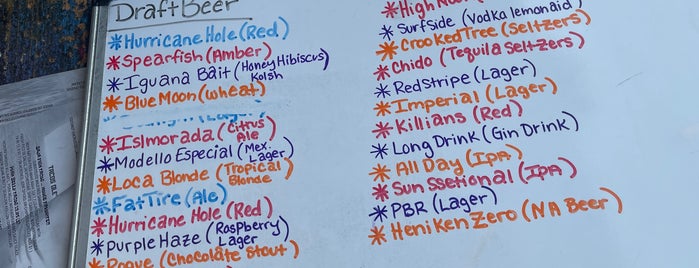 Draft Beer
*Hurricane Hole (Red)
*Spearfish (Amber)
*Iguana Bait (Honey Hibiscus Kolsh
*Blue Moon (wheat)
*Islmorada (Citrus Ale)
*Modello Especial (Mex. Lager)
*Loca Blonde (Tropical Blonde)
*Fat Tire (Ale)
*Hurricane Hole (Red)
*Purple Haze (Raspberry Lager
*Rogue (Chocolate Stout)
*High
*Surfside (Vodka lemonaid)
*Crooked Tree (Seltzers)
*Chido (Tequila Seltzers)
*Red Stripe (Lager)
*Imperial (Lager)
*Killians (Red)
*Long Drink (Gin Drink)
*All Day (IPA)
*Sun Ssetional (IPA)
*PBR (Lager)
*Heniken Zero (NA Beer)